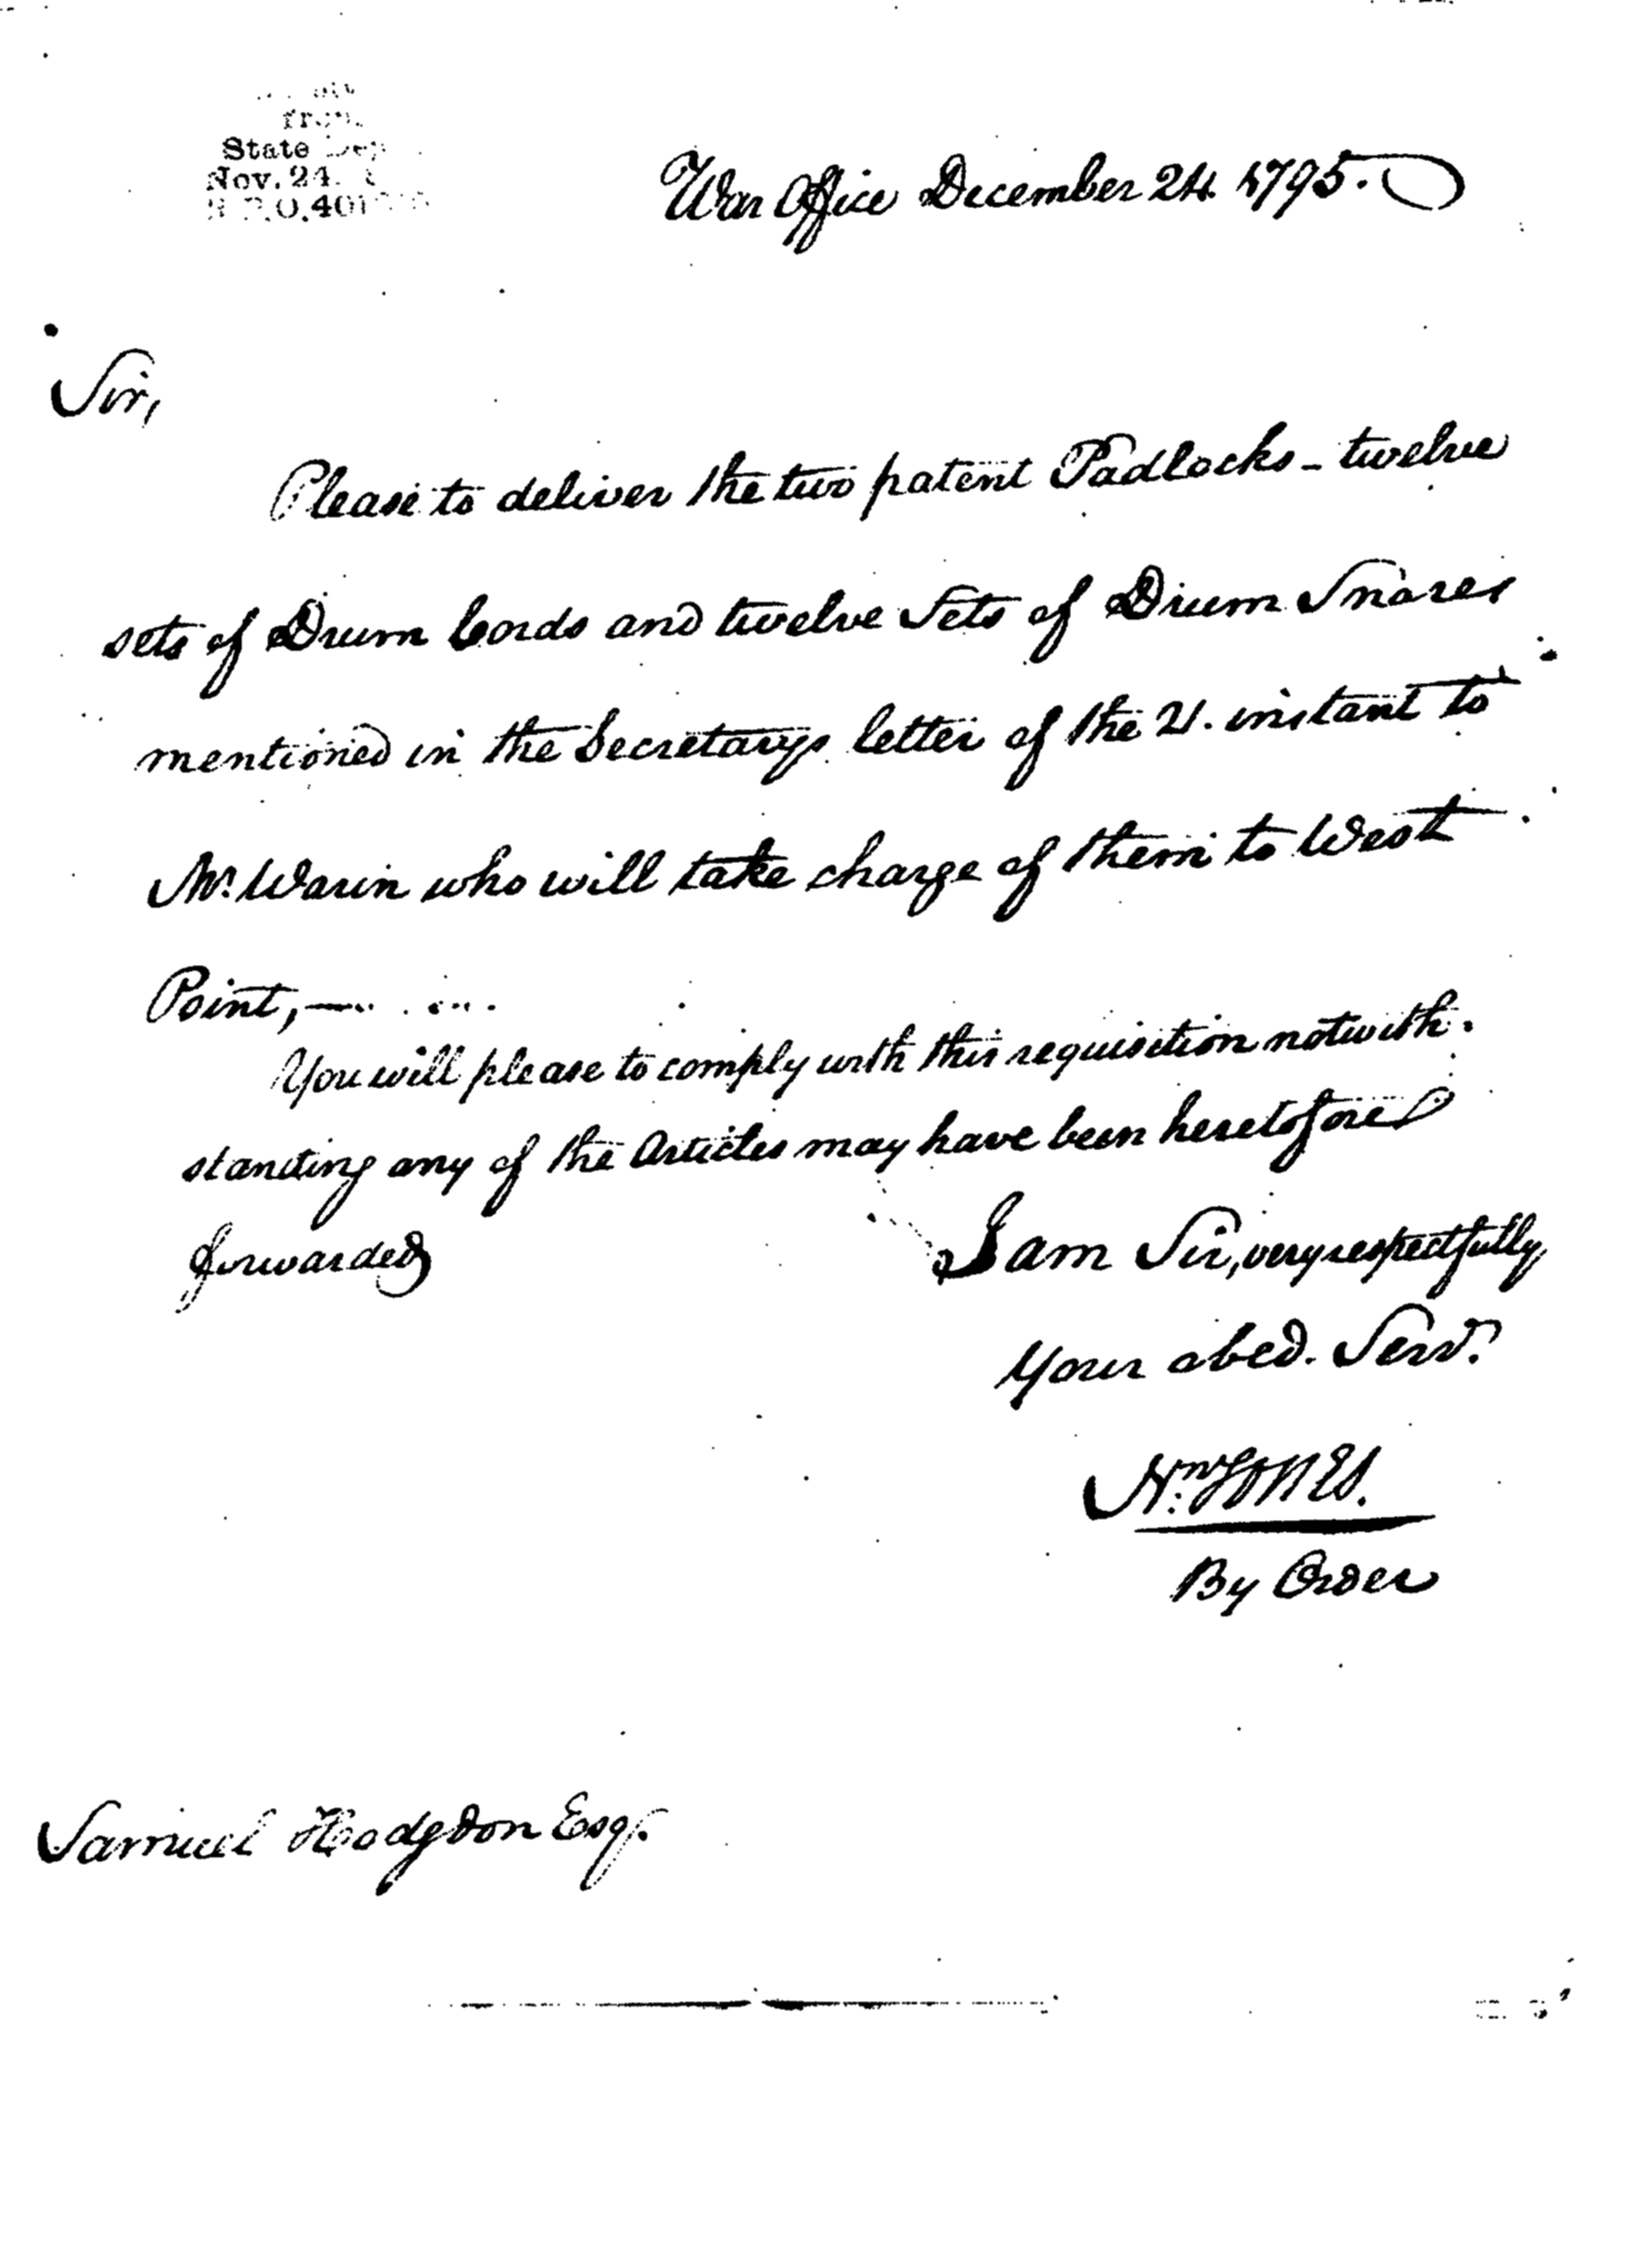 from
State Dep
Nov. 24.
War Office December 24. 1795.
Sir,
Please to deliver the two patent Padlocks - twelve
sets of Drum Cords and twelve Sets of Drum Snares
mentioned in the Secretarys letter of the 21. instant to
Mr. Warin who will take charge of them to West
Point, —
You will please to comply with this requisition notwith-
standing any of the Articles may have been heretofore
forwarded
I am Sir, very respectfully,
Your obed. Serv.
Jno. Jones.
By Order
Samuel Hodgdon Esqr.